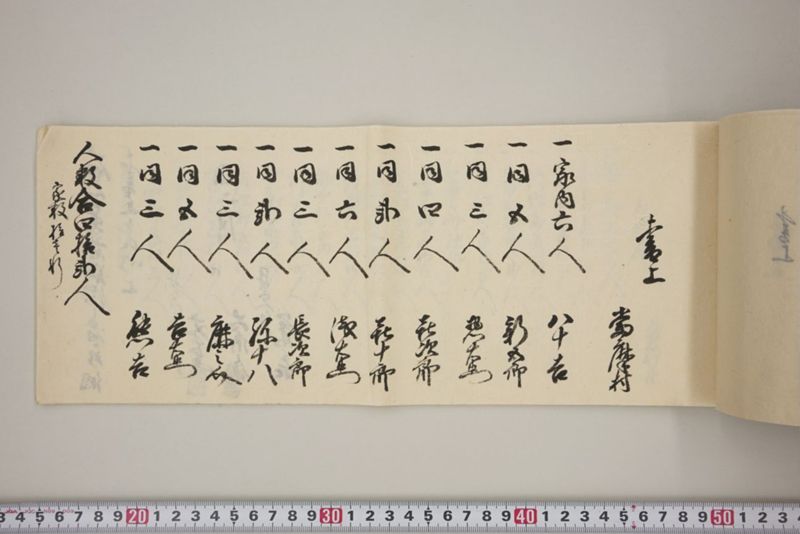 書上
當麻村
一家内六人 八十吉
一同五人 新五郎
一同三人
一同四人 喜次郎
一同弐人 喜十郎
一同六人
一同三人 長次郎
一同弐人 弥十八
一同三人
一同五人
一同三人
人数合四拾弐人
家数拾壱軒
3 4 5 6 7 8 9 20 1 2 3 4 5 6 7 8 9 30 1 2 3 4 5 6 7 8 9 40 1 2 3 4 5 6 7 8 9 50 1 2 3